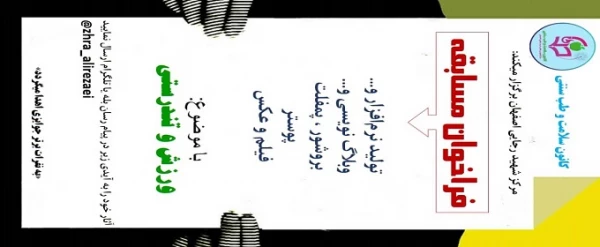 کانون سلامت و طب سنتی
مرکز شهید رجایی اصفهان برگزار میکند:
فراخوان مسابقه
تولید نرم‌افزار و...
وبلاگ نویسی و...
بروشور ، پمفلت
پوستر
فیلم و عکس
با موضوع:
ورزش و تندرستی
آثار خود را به آیدی زیر در پیام رسان بله یا تلگرام ارسال نمایید
@zhra_alirezaei
*به نفرات برتر جوائزی اهدا میگردد*